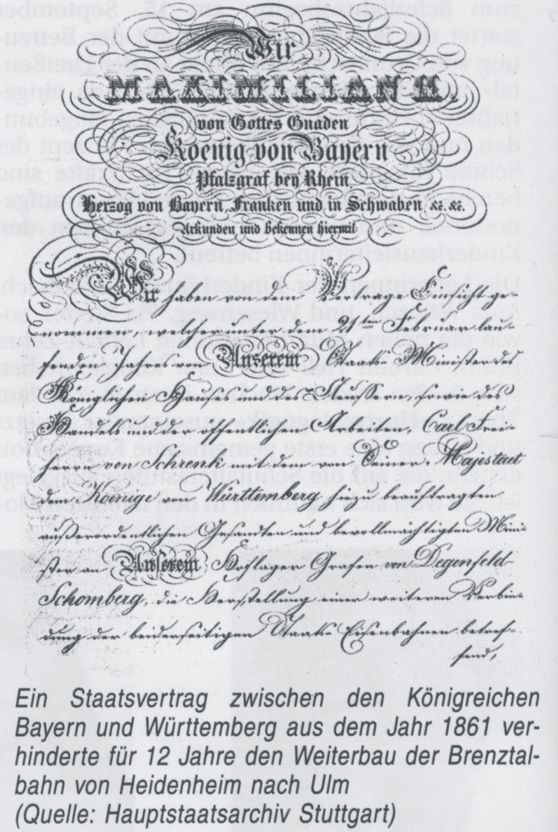 Wir
MAXIMILIAN II.
von Gottes Gnaden
Koenig von Bayern
Pfalzgraf bey Rhein
Herzog von Bayern, Franken und in Schwaben &c. &c.
Urkunden und Bekennen hiermit
Wir haben von dem Vertrage Einsicht ge-
nommen, welcher unter dem 21ten Februar lau-
fenden Jahres von Unserem Staats Minister des
Königlichen Hauses und des Aeussern, sowie des
Handels und der öffentlichen Arbeiten, Carl Frei-
herrn von Schrenk mit dem von Seiner Majestaet
dem Könige von Württemberg hiezu beauftragten
außerordentlichen Gesandten und bevollmächtigten Mini-
ster an Unserem Hoflager Grafen von Degenfeld-
Schomberg, die Herstellung einer weiteren Verbin-
dung der beiderseitigen Staats Eisenbahnen betref-
fend,
Ein Staatsvertrag zwischen den Königreichen
Bayern und Württemberg aus dem Jahr 1861 ver-
hinderte für 12 Jahre den Weiterbau der Brenztal-
bahn von Heidenheim nach Ulm
(Quelle: Hauptstaatsarchiv Stuttgart)